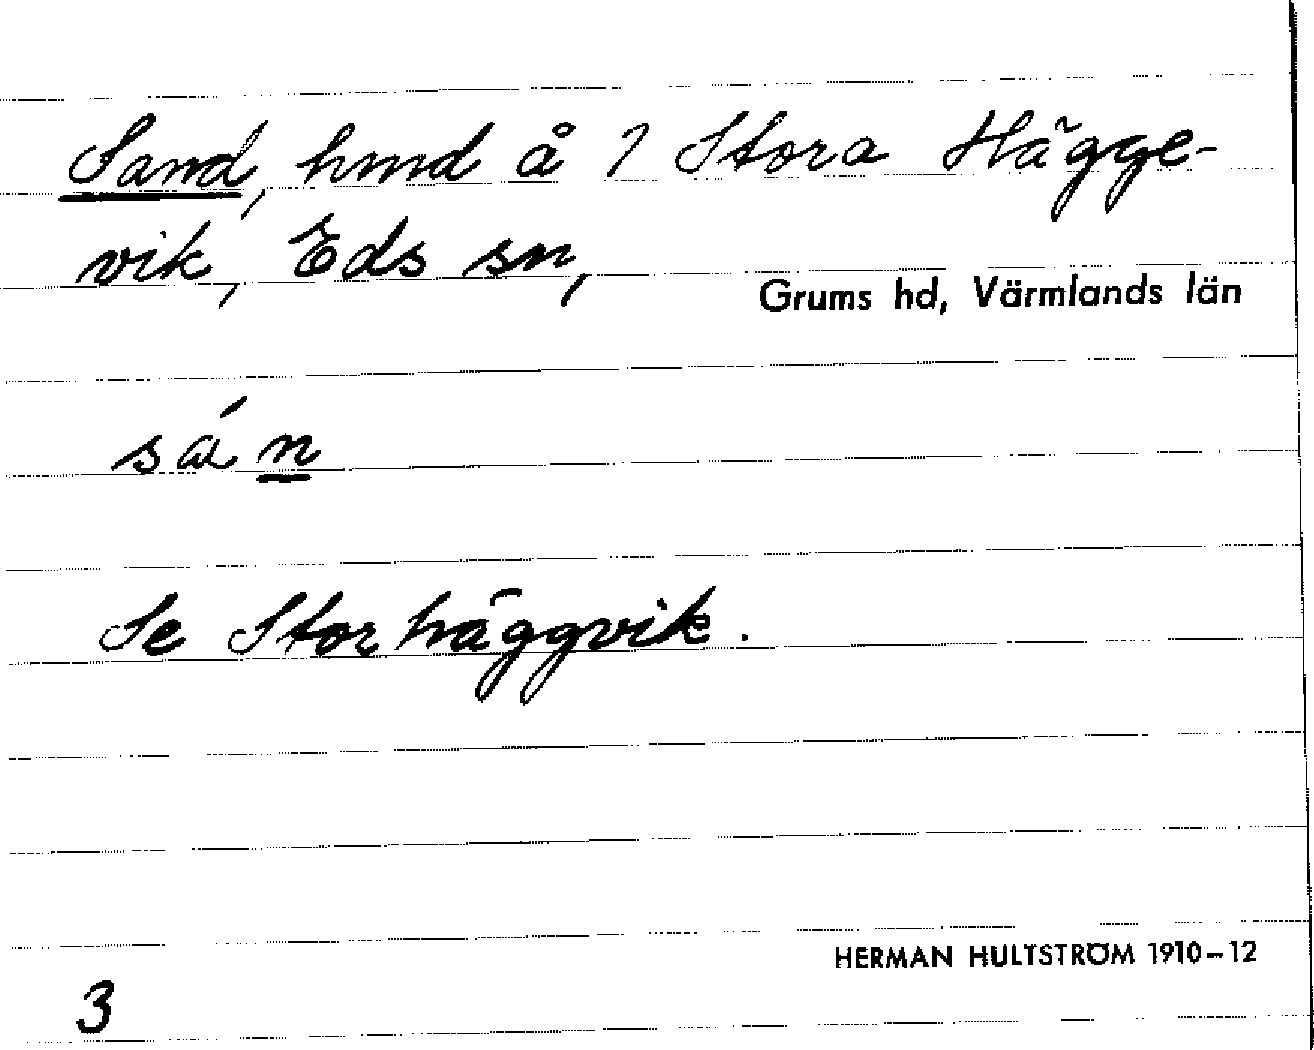 Sand, hmd å 7 Stora Hägge-
vik, Eds sn,
Grums hd, Värmlands län
sán
Se Storhäggvik.
HERMAN HULTSTRÖM 1910-12
3